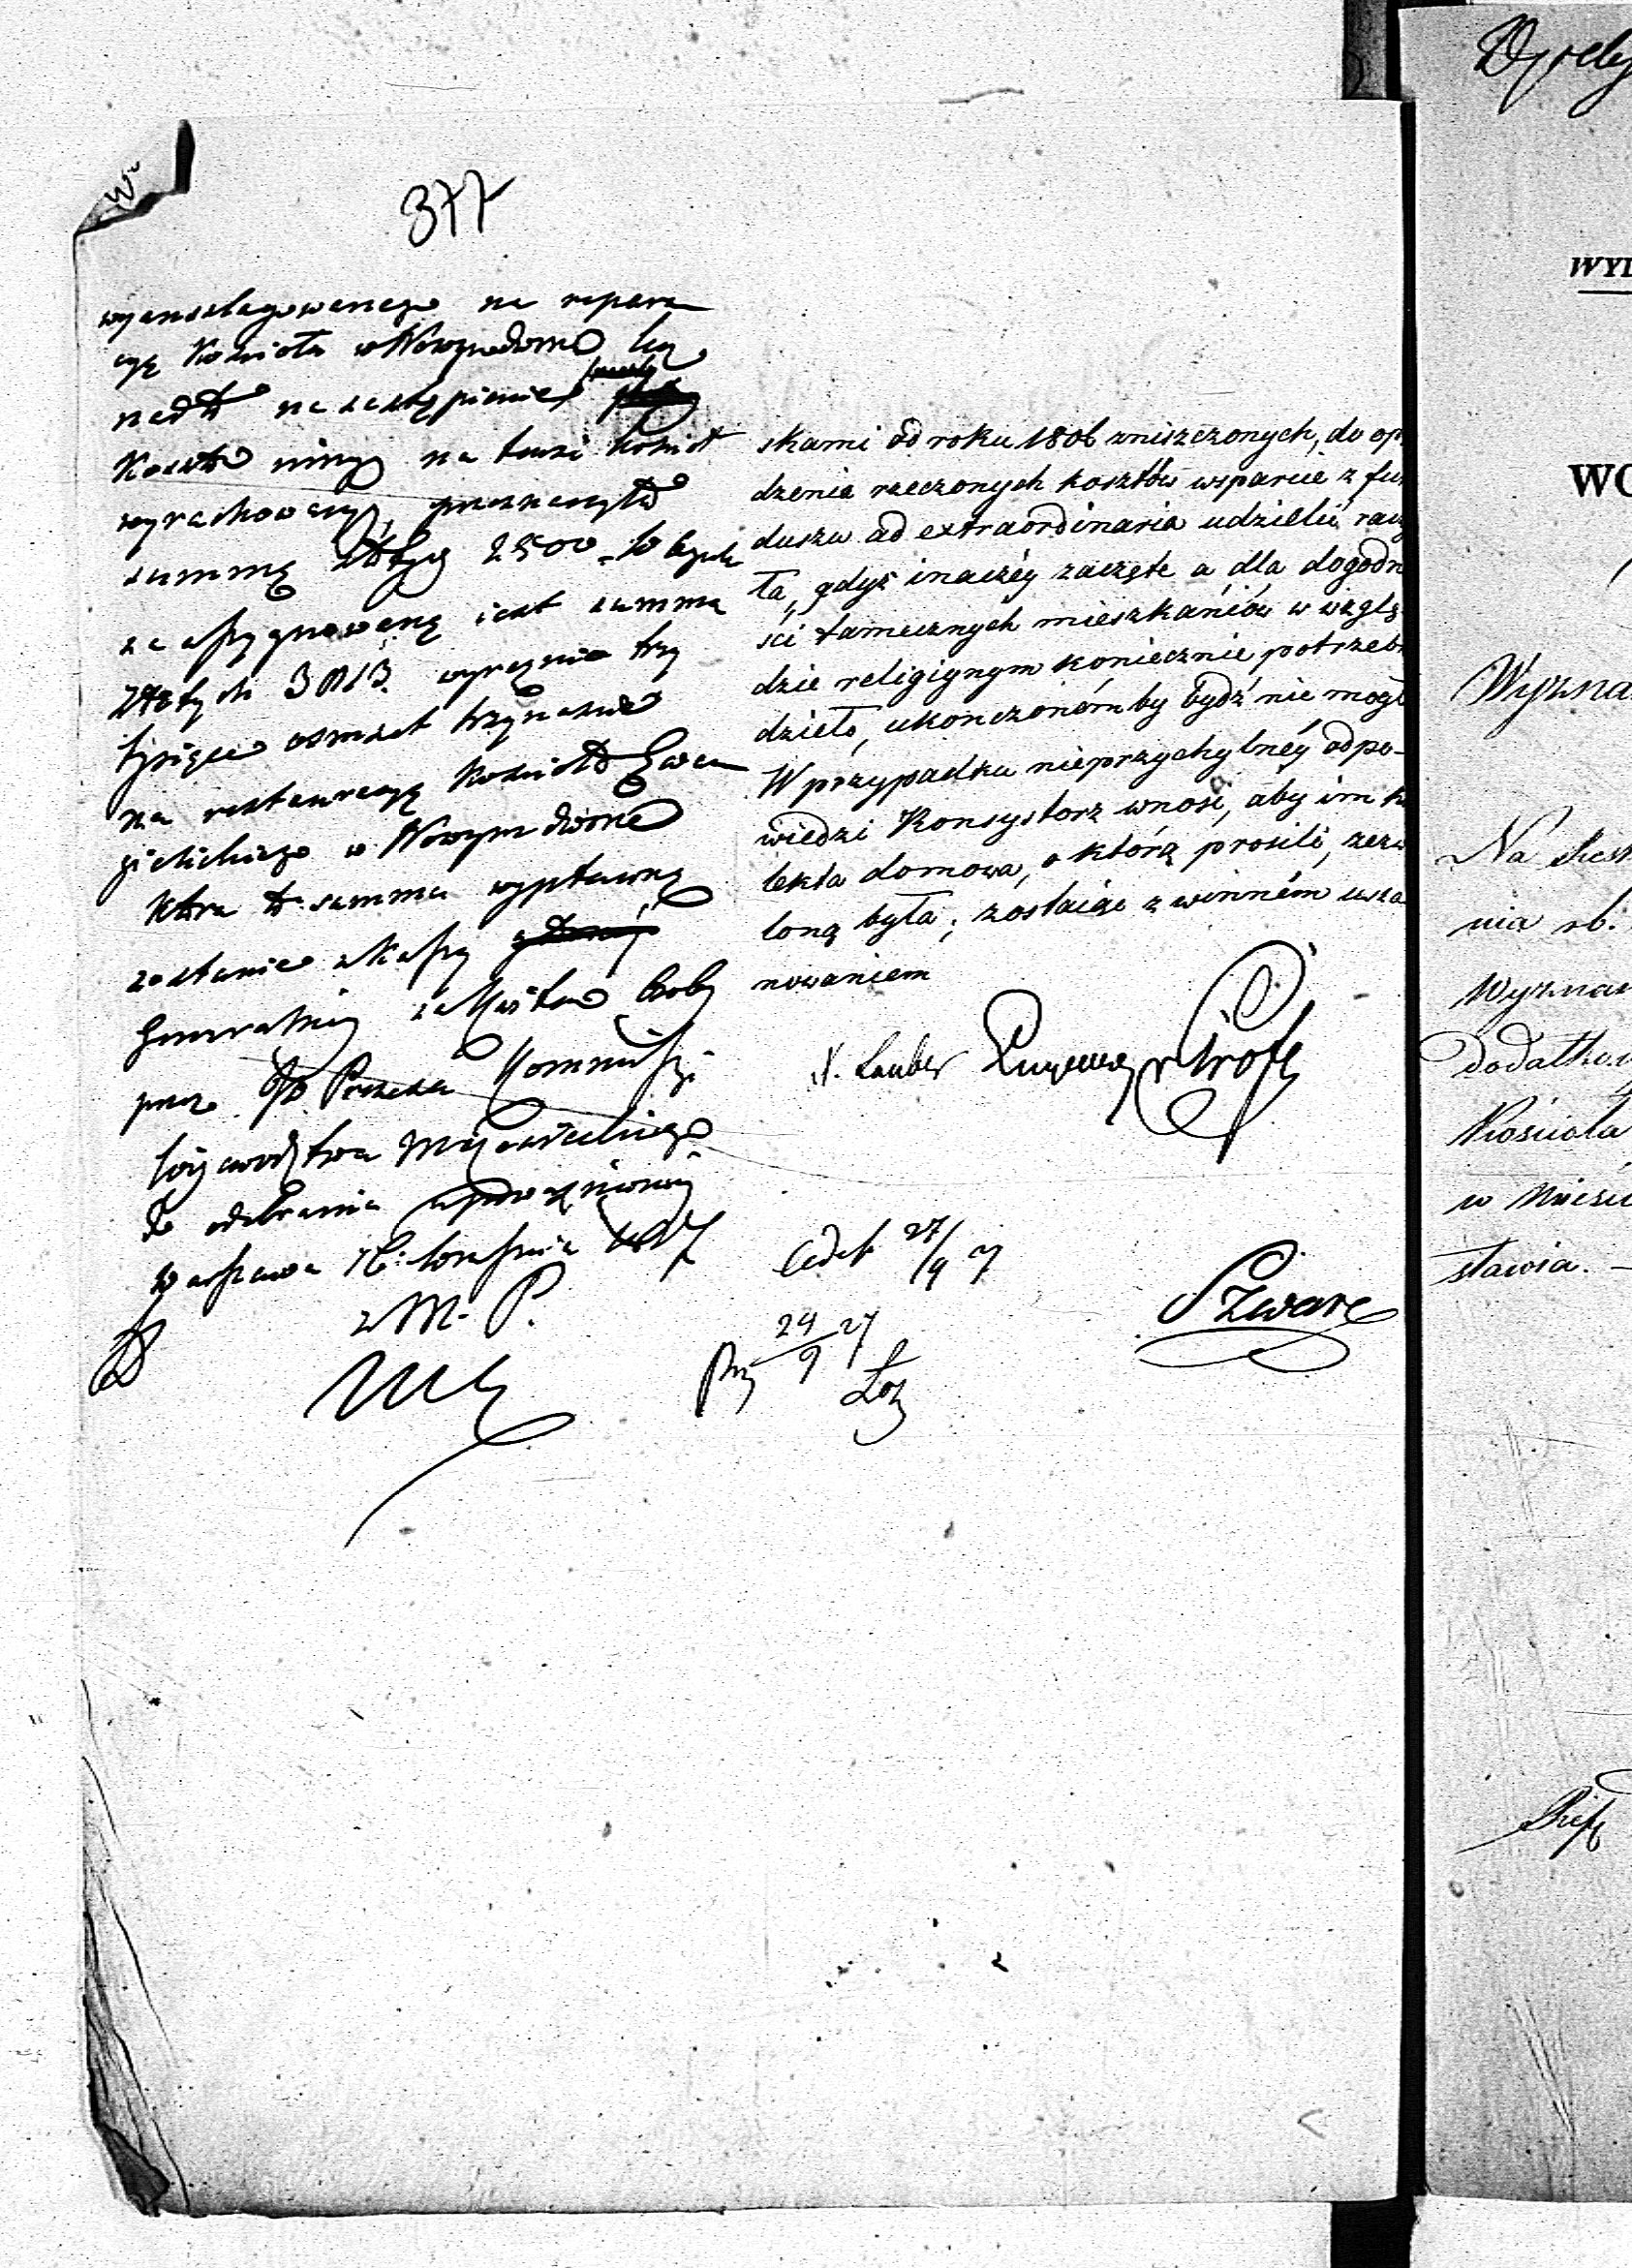 377
wyanszlagowanego na repara
cyę Kościoła w Nowymdworze lecz
nadto na zastąpienie
Kosztów na tenże kościoł
wyrachowany, przeznaczyła
summę Złotych 2500
zaassygnowaną iest summa
Złotych 3813. wyraźnie trzy
tysiące osmset trzynaście
na restauracyą Kościoła Ewan
gielickiego w Nowym dworze
która to summa wypłaconą
zostanie z Kassy
Generalney za Kwitem Osoby
przez Prezesa Kommissyi
Woiewodztwa Mazowieckiego
do odebrania upoważnioney
Warszawa Września 1827
z M. P.
skami od roku 1806 zniszczonych, do op
dzenia rzeczonych kosztów wsparcie z fun
duszu ad extraordinaria udzielić racz
ła, gdyż inaczéy zaczęte a dla dogodn
ści tamecznych mieszkańców w wzglę
dzie religiynym koniecznie potrzebn
dzieło, ukończoném by bydź nie mogł
W przypadku nieprzychylnéy odpo-
wiedzi Konsystorz wnosi, aby im ko
lekta domowa, o którą prosili, zezwo
loną była; zostaiąc z winném usza
nowaniem
Lauber
27/9 27
24/9 27
Szwarc
Dyrek
WYD
WO
Wyzna
Na
nia rb.
Wyznan
Dodatkow
Kościoła
w Mieście
stawia. —